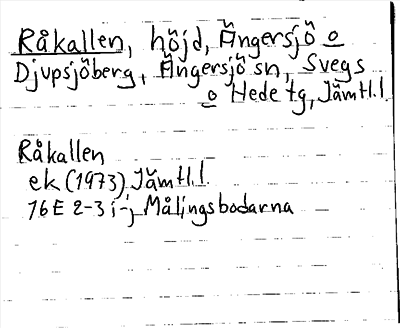 Råkallen, höjd, Ängersjö o
Djupsjöberg, Ängersjö sn, Svegs
o Hede tg, Jämtl.l
Råkallen
ek (1973) Jämtl.l.
16E 2-3 i-j Målingsbodarna